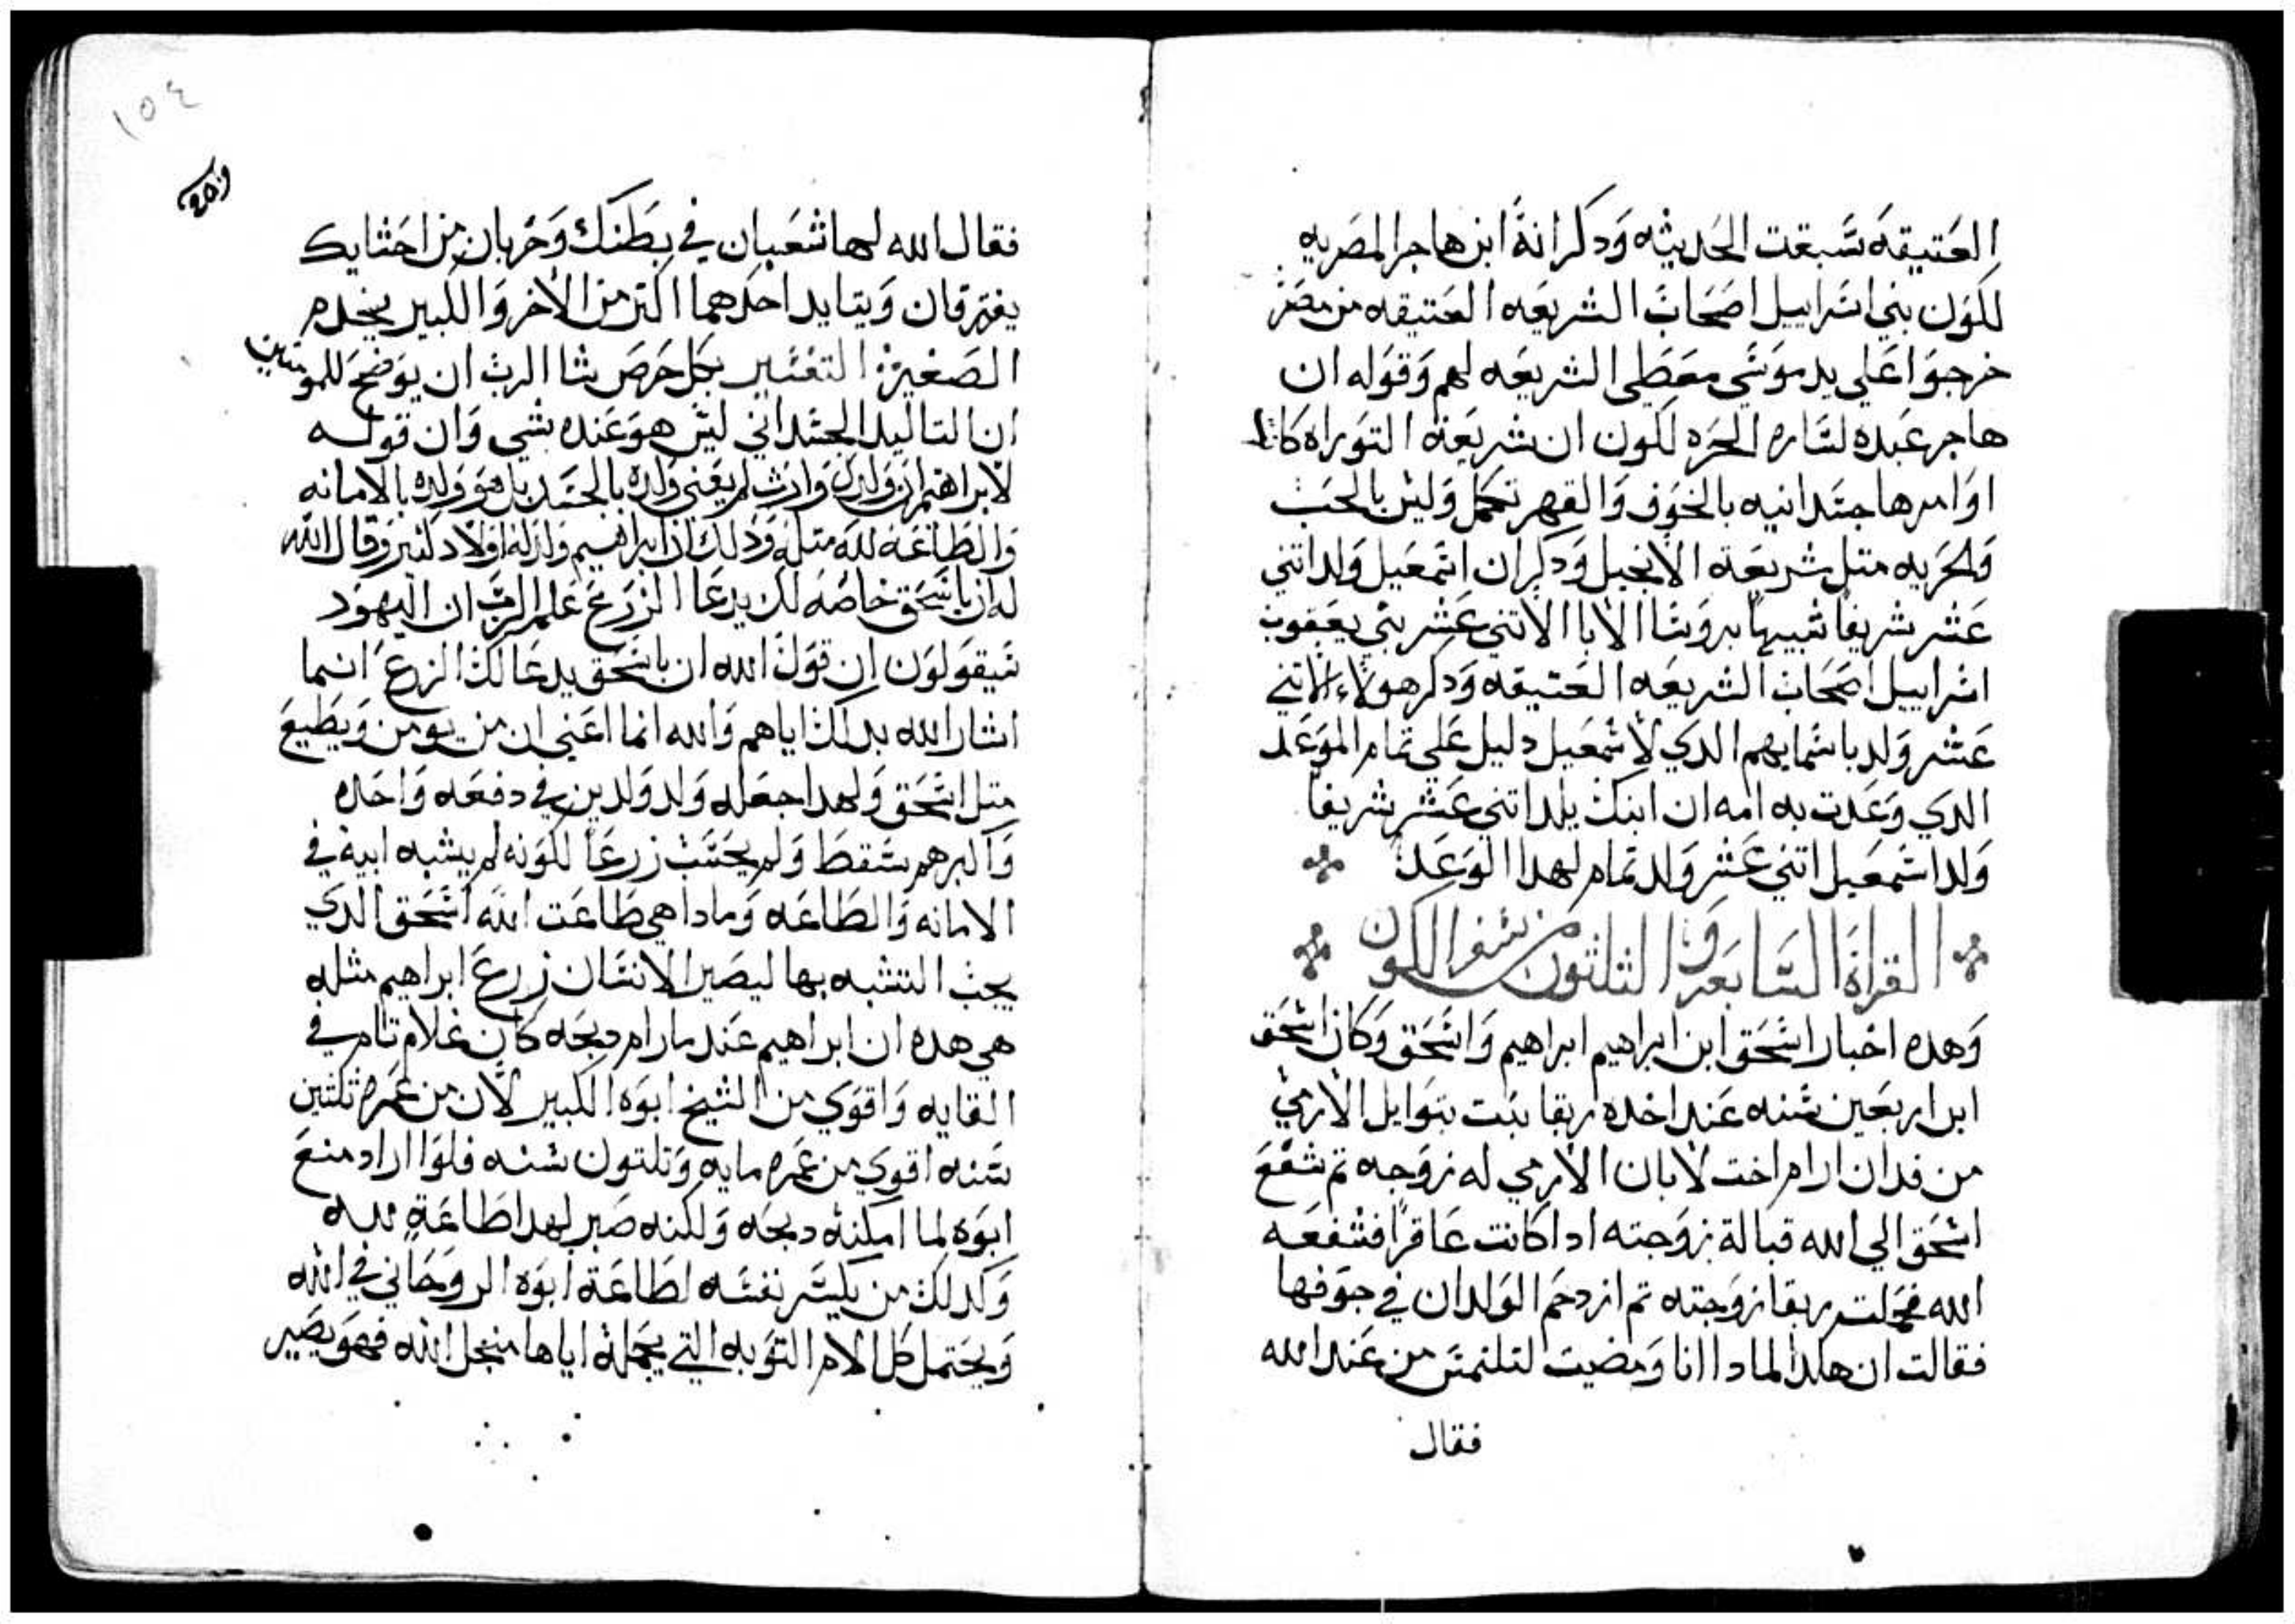 العتيقه سبقت الحديثه ودكر انه ابن هاجر المصريه
لكون بني اسراييل اصحاب الشريعه العتيقه من مصر
خرجوا علي يد موسي معطي الشريعه لهم وقوله ان
هاجر عبده لساره الحره لكون ان شريعة التوراه كانت
اوامرها جسدانيه بالخوف والقهر تكمل وليس بالحب
والحريه متل شريعة الانجيل ودكر ان اسمعيل ولد اتني
عشر شريفا شبيها بروسا الابا الاتني عشر بني يعقوب
اسراييل اصحاب الشريعه العتيقه ودكر هولاء الاتني
عشر ولد باسمايهم الدي لاسمعيل دليل علي تمام الموعد
الدي وعدت به امه ان ابنك يلد اتني عشر شريفا
ولد اسمعيل اتني عشر ولد تمام لهدا الوعد
القراة السابعه والتلتون من سفر الكون
وهده اخبار اسحق ابن ابراهيم ابراهيم واسحق وكان اسحق
ابن اربعين سنه عند اخده ربقا بنت بتوايل الارمي
من فدان ارام اخت لابان الارمي له زوجه تم شفع
اسحق الي الله قبالة زوجته ادا كانت عاقرا فشفعه
الله فحملت ربقا زوجته تم ازدحم الولدان في جوفها
فقالت ان هكدا لمادا انا ومضيت لتلتمس من عند الله
فقال
١٥٤
فقال الله لها شعبان في بطنك وحزبان من احشايك
يفترقان ويتايد احدهما اكتر من الاخر والكبير يخدم
الصغير التفسير بكل حرص شا الرب ان يوضح للمومنين
ان التاليد الجسداني ليس هو عنده بشي وان قوله
لابراهيم ان ولدك وارث لم يعني ولده بالجسد بل هو ولده بالامانه
والطاعه لله متله ودلك ان ابراهيم ولد له اولاد كتير وقال الله
له ان باسحق خاصه لك يدعا الزرع علم الرب ان اليهود
سيقولون ان قول الله ان باسحق يدعا لك الزرع انما
اشار الله بدلك اياهم والله انما اعني ان من يومن ويطيع
متل اسحق ولهدا جعله ولد ولدين في دفعه واحده
واكبرهم سقط ولم يحسب زرعا لكونه لم يشبه ابيه في
الامانه والطاعه ومادا هي طاعت الله اسحق الدي
يجب التشبه بها ليصير الانسان زرع ابراهيم مثله
هي هده ان ابراهيم عند ما رام دبحه كان غلام تام في
القايه واقوي من الشيخ ابوه الكبير لان من عمره تلتين
سنه اقوي من عمره مايه وتلتون سنه فلوا اراد منع
ابوه لما امكنه دبحه ولكنه صبر لهدا طاعة لله
وكدلك من يكسر نفسه لطاعة ابوه الروحاني في الله
ويحتمل كل الام التوبه التي يحمله اياها منجل الله فهو يصير